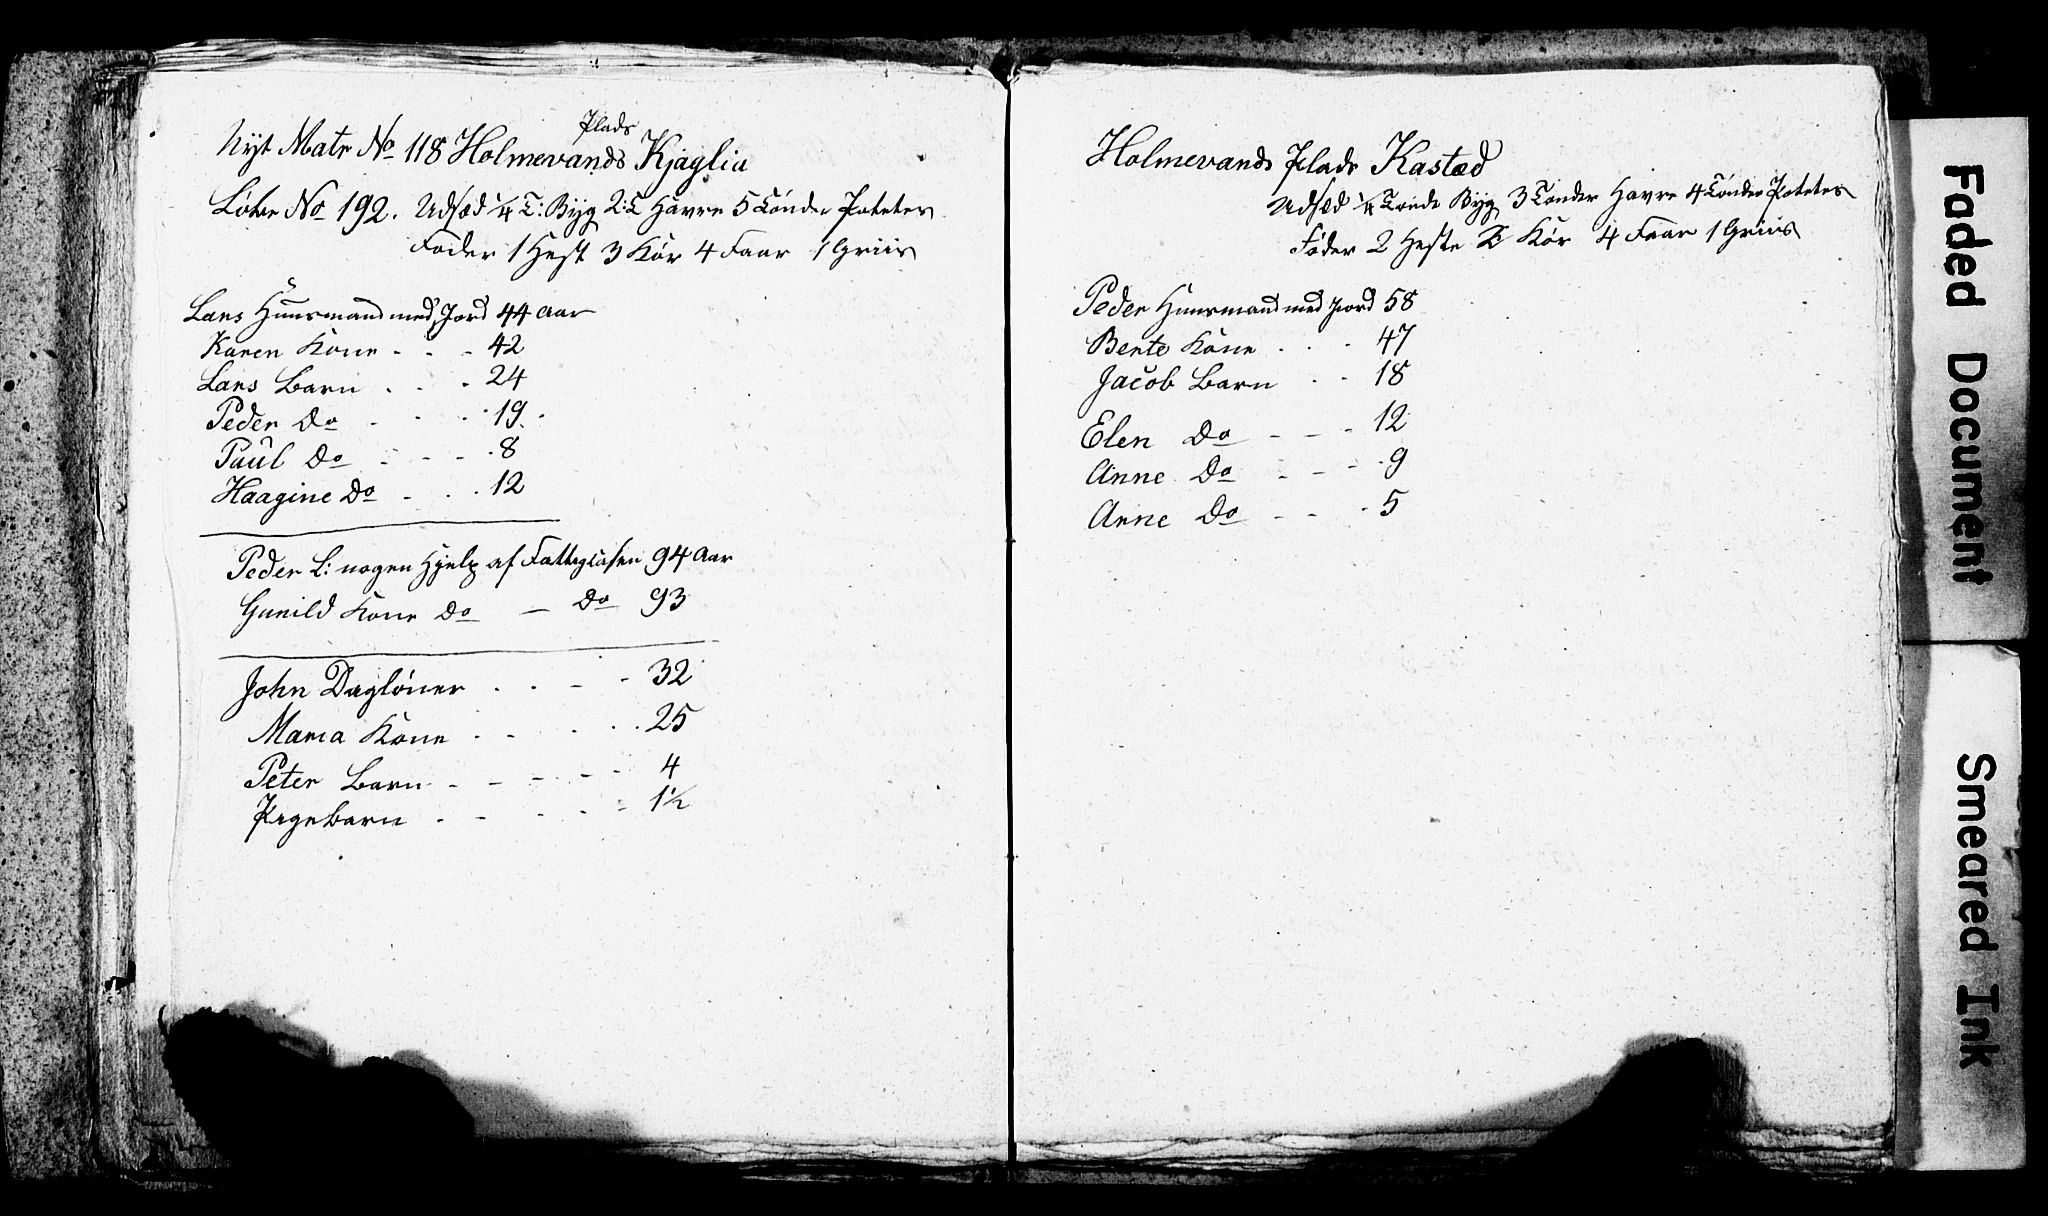 Plads
Nyt Matr No 118 Holmevands Kjaglia
Löbe No 192. Udsæd 1/4 T: Byg 2: T Havre 5 Tönder Poteter
Föder 1 Hest 3 Kör 4 Faar 1 Griis
Lars Huusmand med Jord 44 Aar
Karen Kone - - - 42
Lars Barn . . . 24
Peder Do - - - 19.
Paul Do - - - 8
Haagine Do - . . 12
Peder L: nogen Hjelp af Fattigkasen 94 Aar
Gunild Kone Do — Do 93
John Daglöner . . - - 32
Maria Kone - - . . . 25
Peter Barn - - - - - 4
Pigebarn . - - - - 1 1/2
Holmevands Plads Kastad
Udsæd 1/4 Tönde Byg 3 Tönder Havre 4 Tönder Poteter
Föder 2 Heste Kör 4 Faar 1 Griis
Peder Huusmand med Jord 58
Bente Kone . . . 47
Jacob Barn . . 18
Elen Do - - - 12
Anne Do - - - 9
Anne Do - - . 5
Faded Document
Smeared Ink